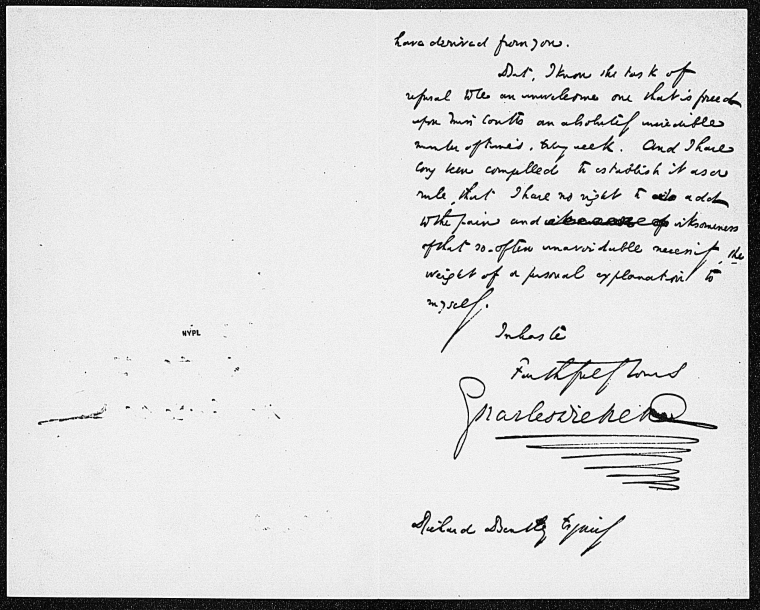 have derived from you.
But, I know the task of
refusal to be an unwelcome one that is forced
upon Miss Coutts an absolutely incredible
number of times, every week. And I have
long been compelled to establish it as a
rule, that I have no right to add
to the pain and irksomeness
of that so-often unavoidable necessity, the
weight of a personal explanation to
myself.
In haste
Faithfully Yours
Charles Dickens
Richard Bentley Esquire
NYPL